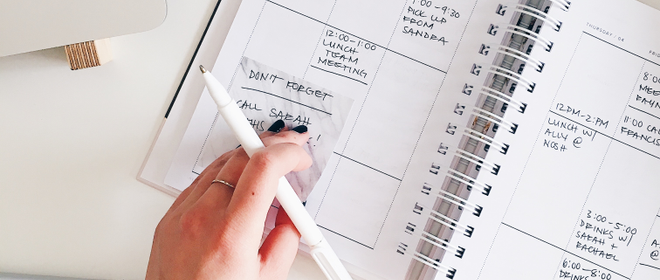 9:30
PICK UP
FROM
SANDRA
12:00-1:00
LUNCH
TEAM
MEETING
DON'T FORGET
CALL SARAH
THURSDAY 04
12PM-2PM
LUNCH W/
ALLY @
NOSH
8:00
11:00 CALL
FRANCIS
3:00-5:00
DRINKS W/
SARAH +
RACHAEL
6:00-8:00
DRINKS